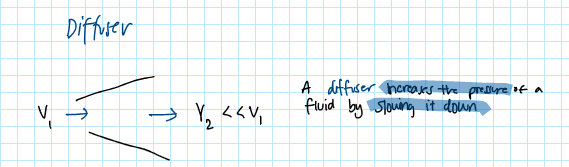 Diffuser
V₁ → → V₂ << V₁
A diffuser increases the pressure of a
fluid by slowing it down